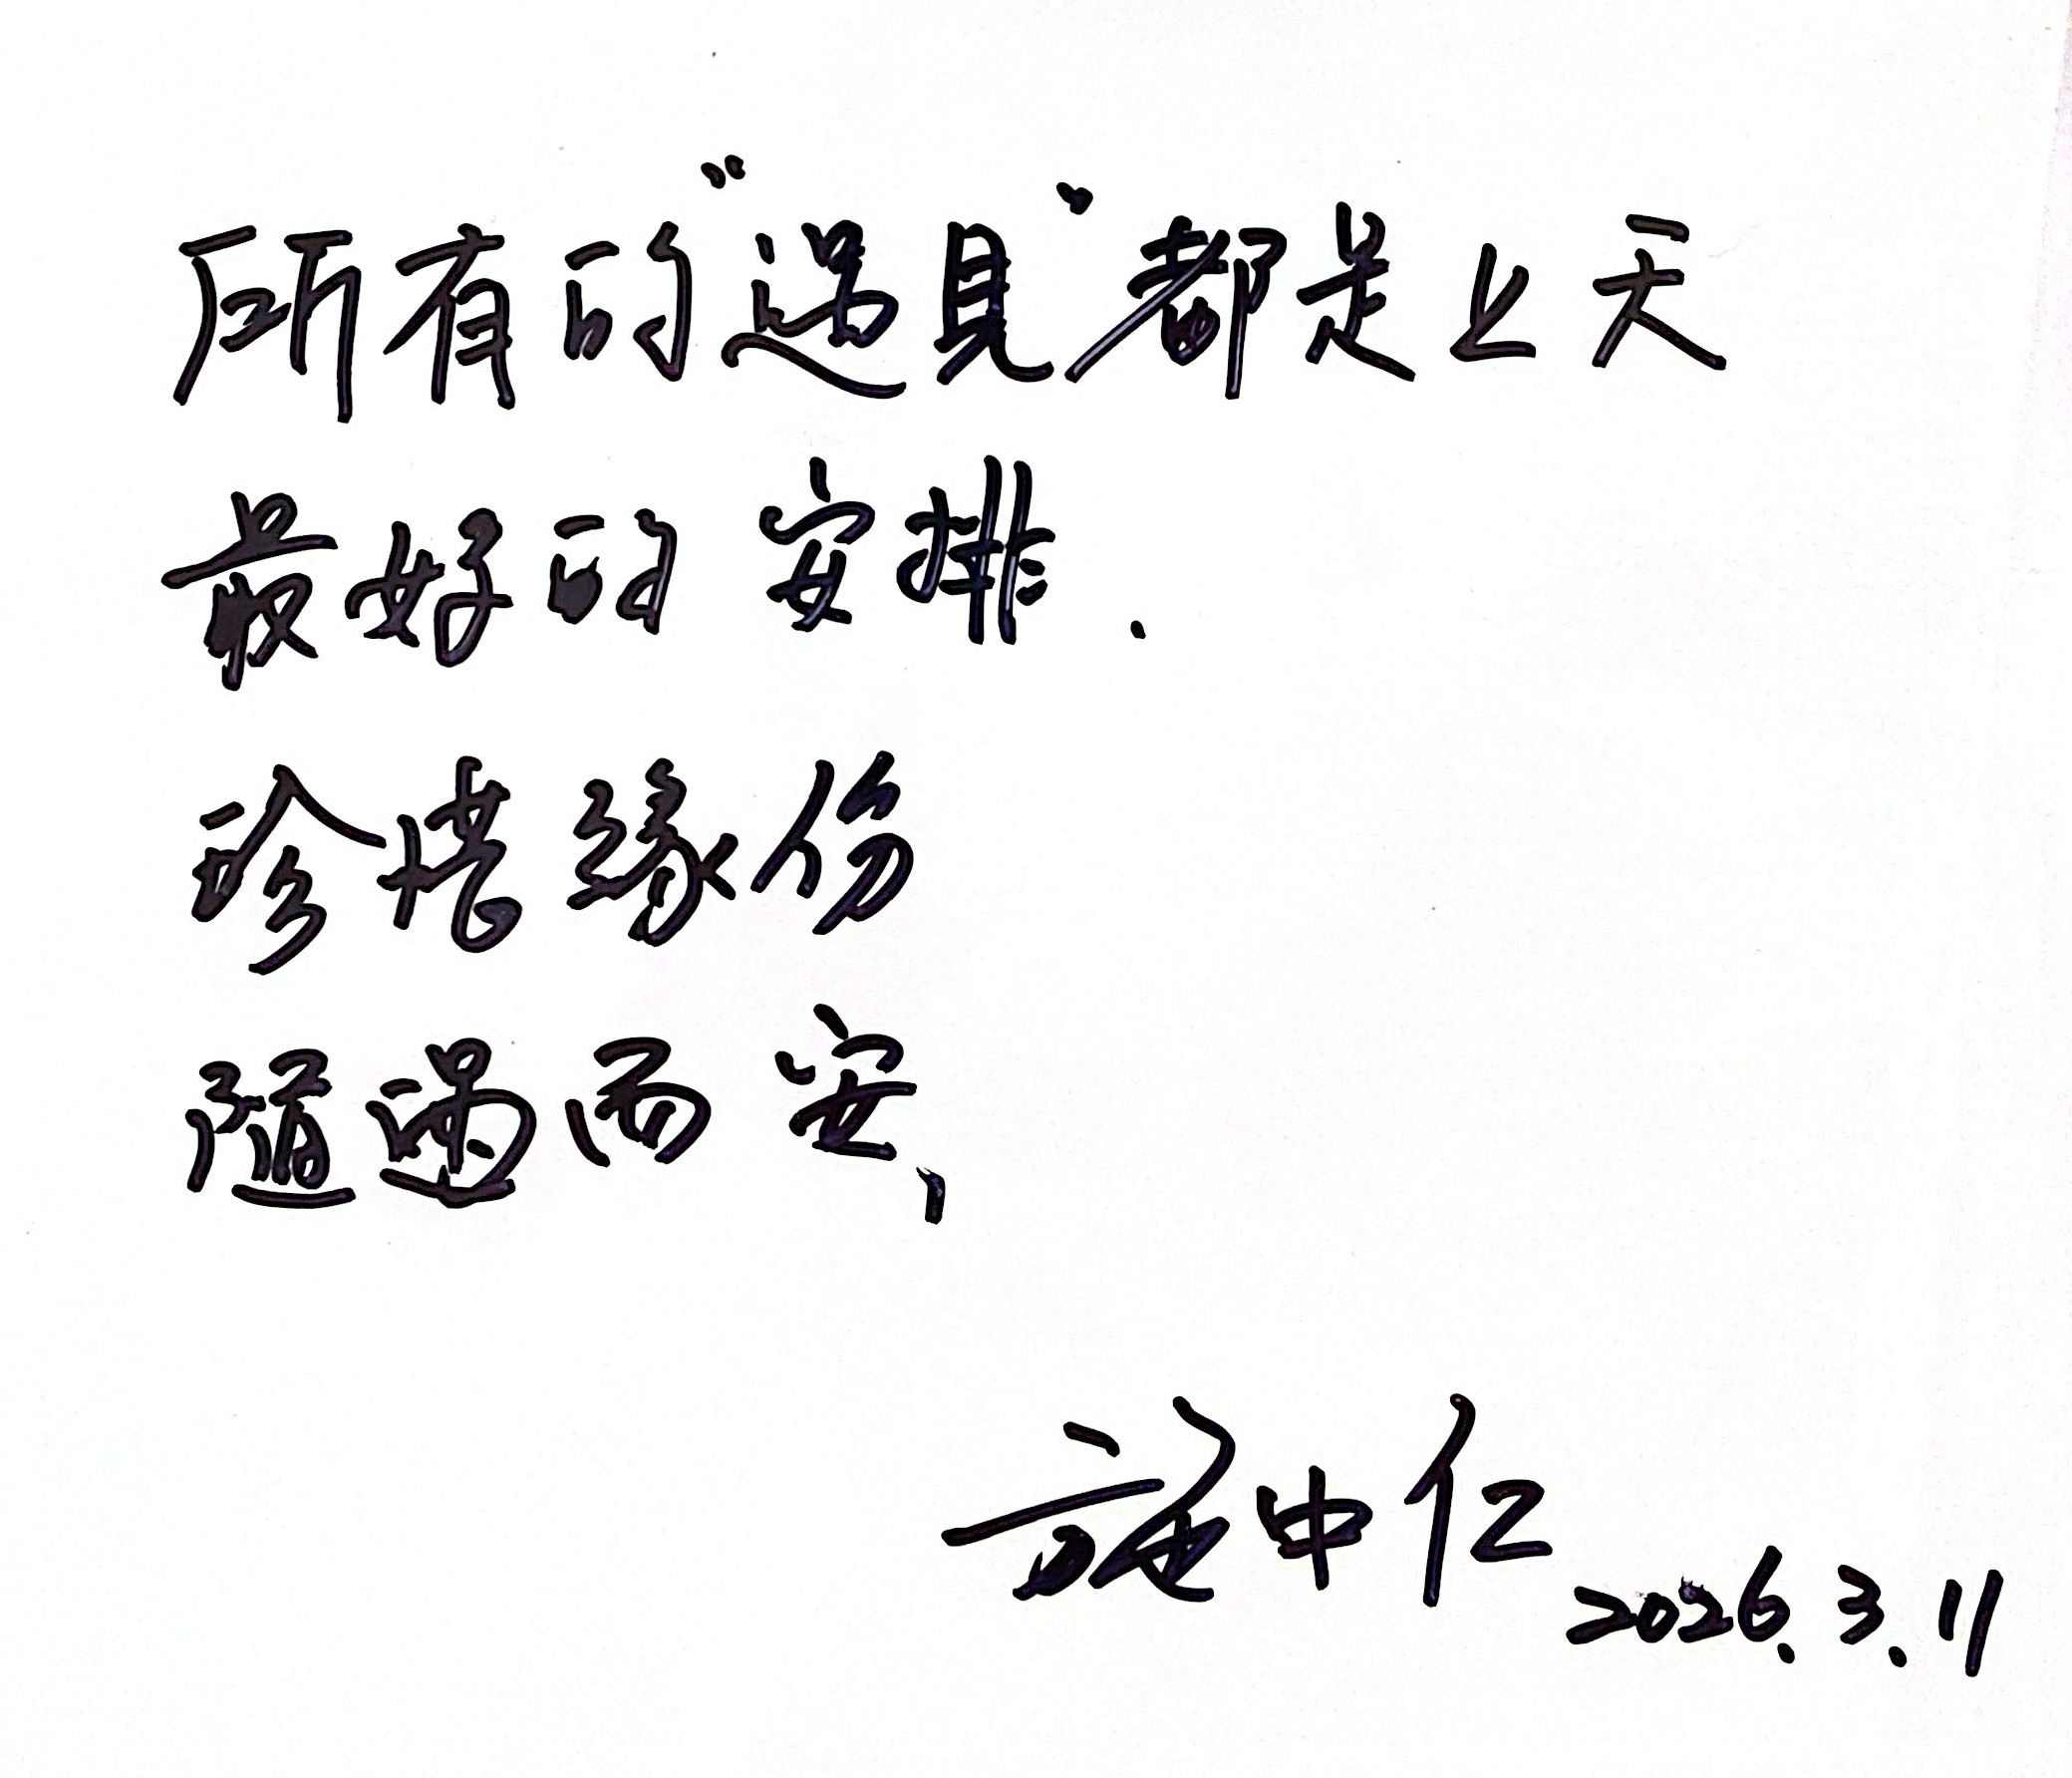 所有的“遇見”都是上天
最好的安排.
珍惜缘份
随遇而安,
施中仁
2026.3.11